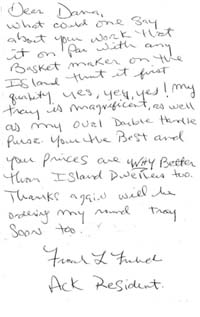 Dear Dana,
what could one say
about your work that
it on Par with any
Basket maker on the
Island that it first
quality yes, yes, yes! my
tray is magnificent, as well
as my oval Double Handle
Purse. Your the Best and
your prices are Way Better
than Island Dwellers too.
Thanks again will be
ordering my round tray
soon too.
Frank L
Ack Resident.